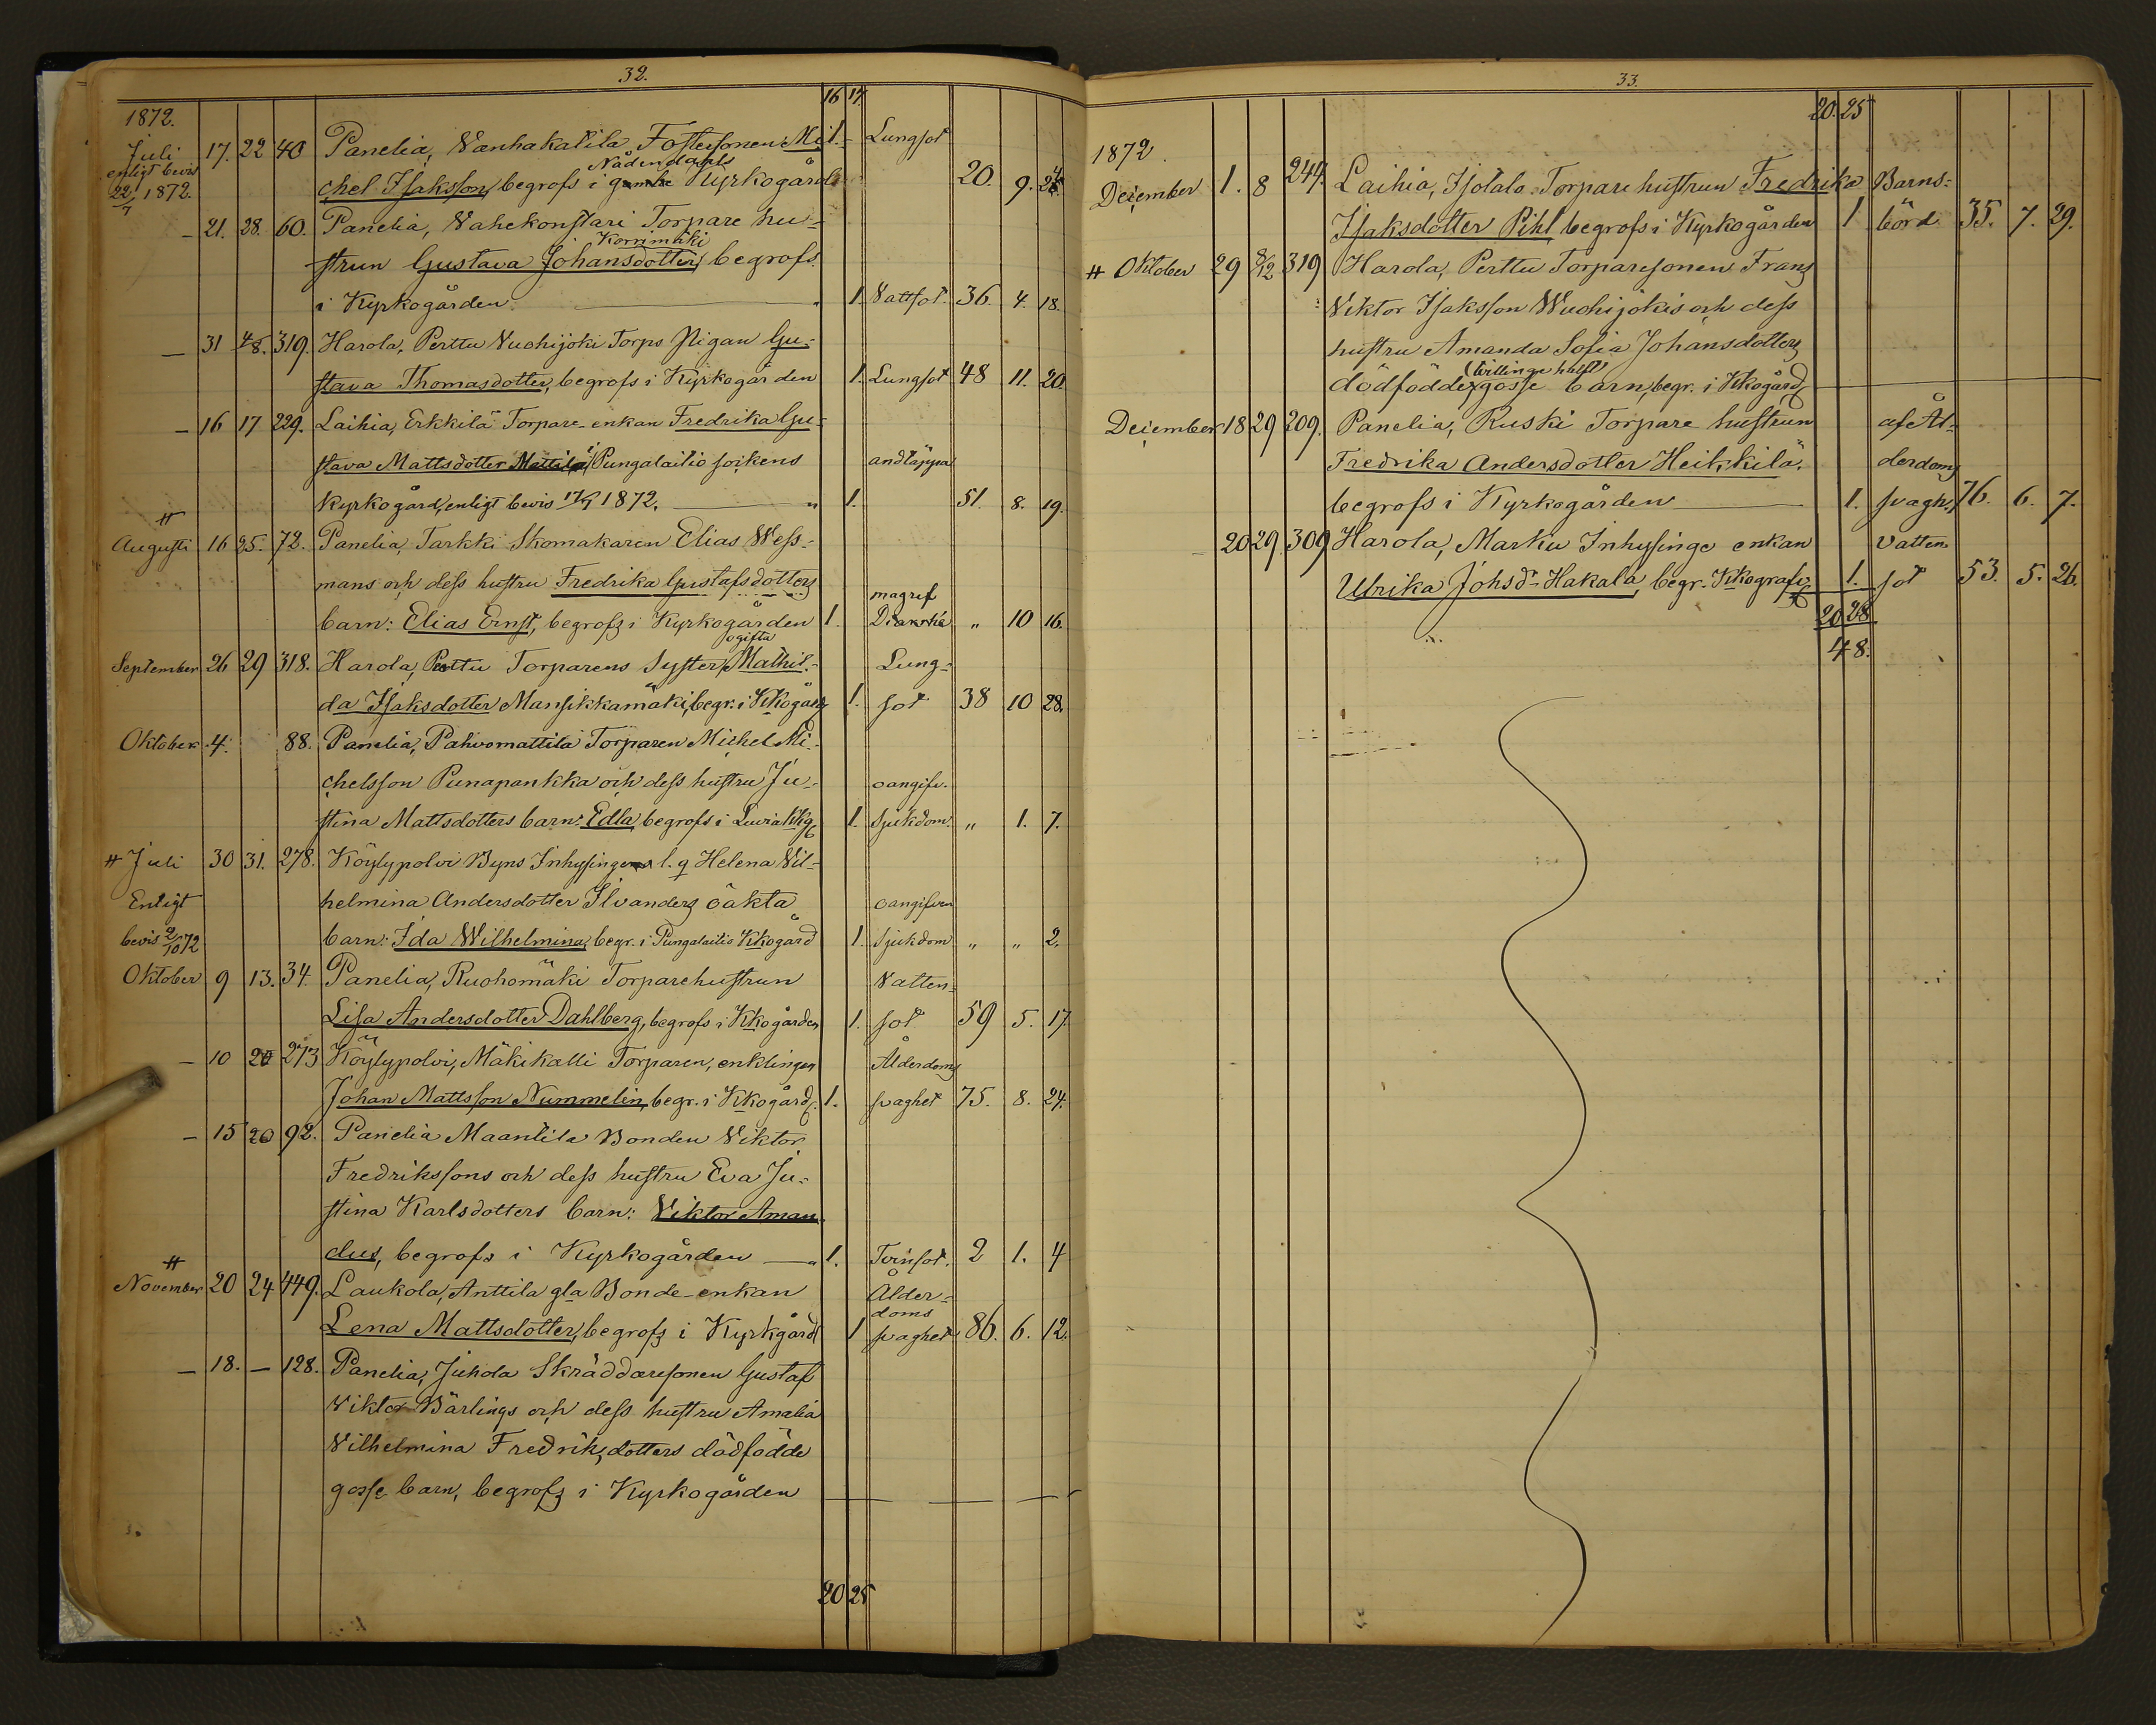 32.
16 17
1872.
Juli 17. 22 40 Panelia, Wanhakatila Fostersonen Mi- 1. Lungsot
enligt bevis Nådendahls
22/7 1872. chel Isaksson, begrofs i Kyrkogård 20. 9. 24
- 21. 28. 60. Panelia, Vahekonstari Torpare hu-
Korrimäki
strun Gustava Johansdotter, begrofs
i Kyrkogården " 1. Vattsot. 36. 4. 18.
- 31 4/8. 319. Harola, Perttu Vuohijoki Torps Pigan Gu-
stava Thomasdotter, begrofs i Kyrkogården 1. Lungsot 48 11. 20.
- 16 17 229. Laihia, Erkkilä Torpare-enkan Fredrika Gu-
stava Mattsdotter Mattila, i Pungalaitio sockens andtäppa
Kyrkogård, enligt bevis 17/7 1872. " 1. 51. 8. 19.
#
Augusti 16 25. 72. Panelia, Tarkki Skomakaren Elias Wess-
mans och dess hustru Fredrika Gustafsdotters magref
barn: Elias Ernst, begrofs i Kyrkogården 1. " 10 16.
ogifta
September 26 29 318. Harola, Perttu Torparens Syster Mathil- Lung-
da Isaksdotter Mansikkamäki, begr. i Kkogård 1. sot 38 10 28.
Oktober 4. 88. Panelia, Pahvomattila Torparen Michel Mi-
chelsson Punapankka och dess hustru Ju- oangifv.
stina Mattsdotters barn: Edla, begrofs i Luvia Kkg 1. Sjukdom. " 1. 7.
# Juli 30 31. 278. Köylypolvi Byns Inhysinge l. q Helena Vil-
Enligt helmina Andersdotter Ilvanders oäkta oangifven
bevis 2/10 72 barn: Ida Wilhelmina, begr. i Pungalaitio Kkogård 1. Sjukdom " " 2.
Oktober 9 13. 34. Panelia, Ruohomäki Torparehustrun Vatten-
Lisa Andersdotter Dahlberg, begrofs i Kkogården 1. sot 59 5. 17.
- 10 20 273 Köylypolvi, Mäkikalli Torparen, enklingen Ålderdoms
Johan Mattsson Nummelin, begr. i Kkogård. 1. svaghet 75. 8. 24.
- 15 20 92. Panelia Maantila Bonden Viktor
Fredrikssons och dess hustru Eva Ju-
stina Karlsdotters barn: Viktor Aman-
dus, begrofs i Kyrkogården " 1. Tvinsot. 2 1. 4
#
November 20 24 449. Laukola, Anttila gla Bonde-enkan Ålder-
doms
Lena Mattsdotter, begrofs i Kyrkgård 1 svaghet 86. 6. 12.
- 18. - 128. Panelia, Juhola Skräddaresonen Gustaf
Viktor Bärlings och dess hustru Amalia
Vilhelmina Fredriksdotters dödfödde
gosse barn, begrofs i Kyrkogården
20 25
33.
20. 25
1872.
December 1. 8 244. Laihia, Isotalo Torpare hustrun Fredrika Barns-
Isaksdotter Pihl, begrofs i Kyrkogården 1 börd 35. 7. 29.
# Oktober 29 8/12 319 Harola, Perttu Torparesonen Frans
Viktor Isaksson Wuohijokis och dess
hustru Amanda Sofia Johansdotters
(tvillinge hälft)
dödfödde gosse barn, begr. i Kkogård
December 18 29 209. Panelia, Ruski Torpare hustrun af Ål-
Fredrika Andersdotter Heikkilä, derdoms
begrofs i Kyrkogården 1. svagh. 76. 6. 7.
- 20 29 309 Harola, Marku Inhysinge enkan Vatten
Ulrika Johsdr Hakala, begr. Kkogrfs 1. sot 53. 5. 26.
20 28.
48.